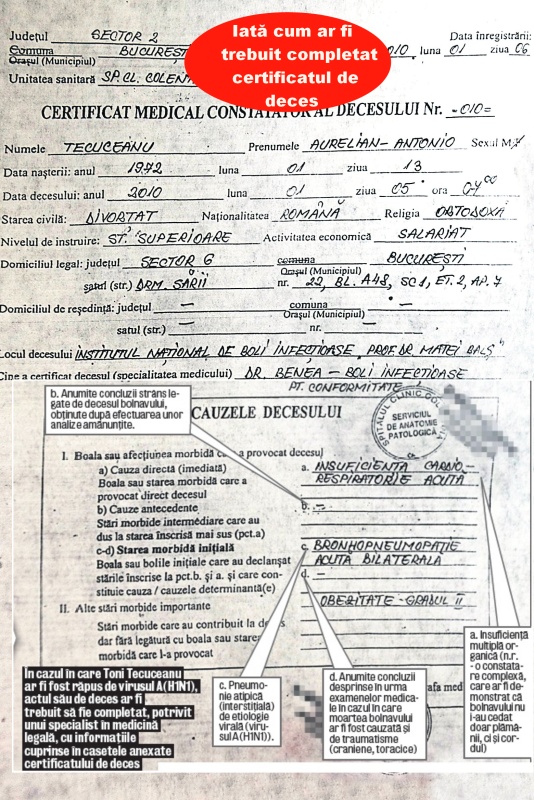 Iată cum ar fi
trebuit completat
certificatul de
deces
Județul SECTOR 2 Data înregistrării:
Comuna BUCUREȘTI 2010 luna 01 ziua 06
Orașul (Municipiul)
Unitatea sanitară SP. CL. COLENT
CERTIFICAT MEDICAL CONSTATATOR AL DECESULUI Nr. -010=
Numele TECUCEANU Prenumele AURELIAN-ANTONIO Sexul M
Data nașterii: anul 1972 luna 01 ziua 13
Data decesului: anul 2010 luna 01 ziua 05 ora 04 00
Starea civilă: DIVORTAT Naționalitatea ROMÂNĂ Religia ORTODOXĂ
Nivelul de instruire: ST. SUPERIOARE Activitatea economică SALARIAT
Domiciliul legal: județul SECTOR 6 comuna BUCUREȘTI
Orașul (Municipiul)
satul (str.) DRM. SĂRII nr. 22, BL. A48, SC 1, ET. 2, AP. 7
Domiciliul de reședință: județul — comuna —
Orașul (Municipiul)
satul (str.) — nr. —
Locul decesului INSTITUTUL NAȚIONAL DE BOLI INFECȚIOASE "PROF. DR. MATEI BALȘ"
Cine a certificat decesul (specialitatea medicului) DR. BENEA - BOLI INFECȚIOASE
PT. CONFORMITATE
b. Anumite concluzii strâns le-
gate de decesul bolnavului,
obținute după efectuarea unor
analize amănunțite.
CAUZELE DECESULUI
SPITALUL CLINIC COL
SERVICIUL
DE ANATOMIE
PATOLOGICĂ
I. Boala sau afecțiunea morbidă a provocat decesul
a) Cauza directă (imediată) a. INSUFICIENȚA CARDIO-
Boala sau starea morbidă care a RESPIRATORIE ACUTĂ
provocat direct decesul
b) Cauze antecedente b. —
Stări morbide intermediare care au
dus la starea înscrisă mai sus (pct.a)
c-d) Starea morbidă inițială c. BRONHOPNEUMOPATIE
Boala sau bolile inițiale care au declanșat ACUTĂ BILATERALĂ
stările înscrise la pct.b. și a. și care con- d. —
stituie cauza / cauzele determinantă(e)
II. Alte stări morbide importante OBEZITATE - GRADUL II
Stări morbide care au contribuit la deces
dar fără legătură cu boala sau starea
morbidă care l-a provocat
a. Insuficiență
multiplă or-
ganică (n.r.
- o constata-
re complexă,
care ar fi de-
monstrat că
bolnavului nu
i-au cedat
doar plămâ-
nii, ci și cor-
dul)
c. Pneumo-
nie atipică
(interstițială)
de etiologie
virală (viru-
sul A(H1N1)).
d. Anumite concluzii
desprinse în urma
examenelor medica-
le în cazul în care
moartea bolnavului
ar fi fost cauzată și
de traumatisme
(craniene, toracice)
În cazul în care Toni Tecuceanu
ar fi fost răpus de virusul A(H1N1),
actul său de deces ar fi
trebuit să fie completat, potrivit
unui specialist în medicină
legală, cu informațiile
cuprinse în casetele anexate
certificatului de deces